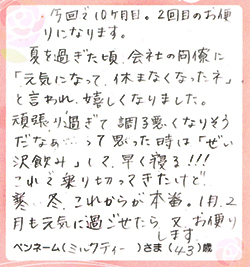 今回で10ヶ月目。2回目のお便
りになります。
夏を過ぎた頃、会社の同僚に
「元気になって、休まなくなったネ」
と言われ、嬉しくなりました。
頑張り過ぎて調子悪くなりそう
だなぁ…って思った時は「ぜい
沢飲み」して、早く寝る!!!
これで乗り切ってきたけど、
冬、これからが本番。1月、2
月も元気に過ごせたら、又、お便り
します。
ペンネーム(ミルクティー)さま(43)歳